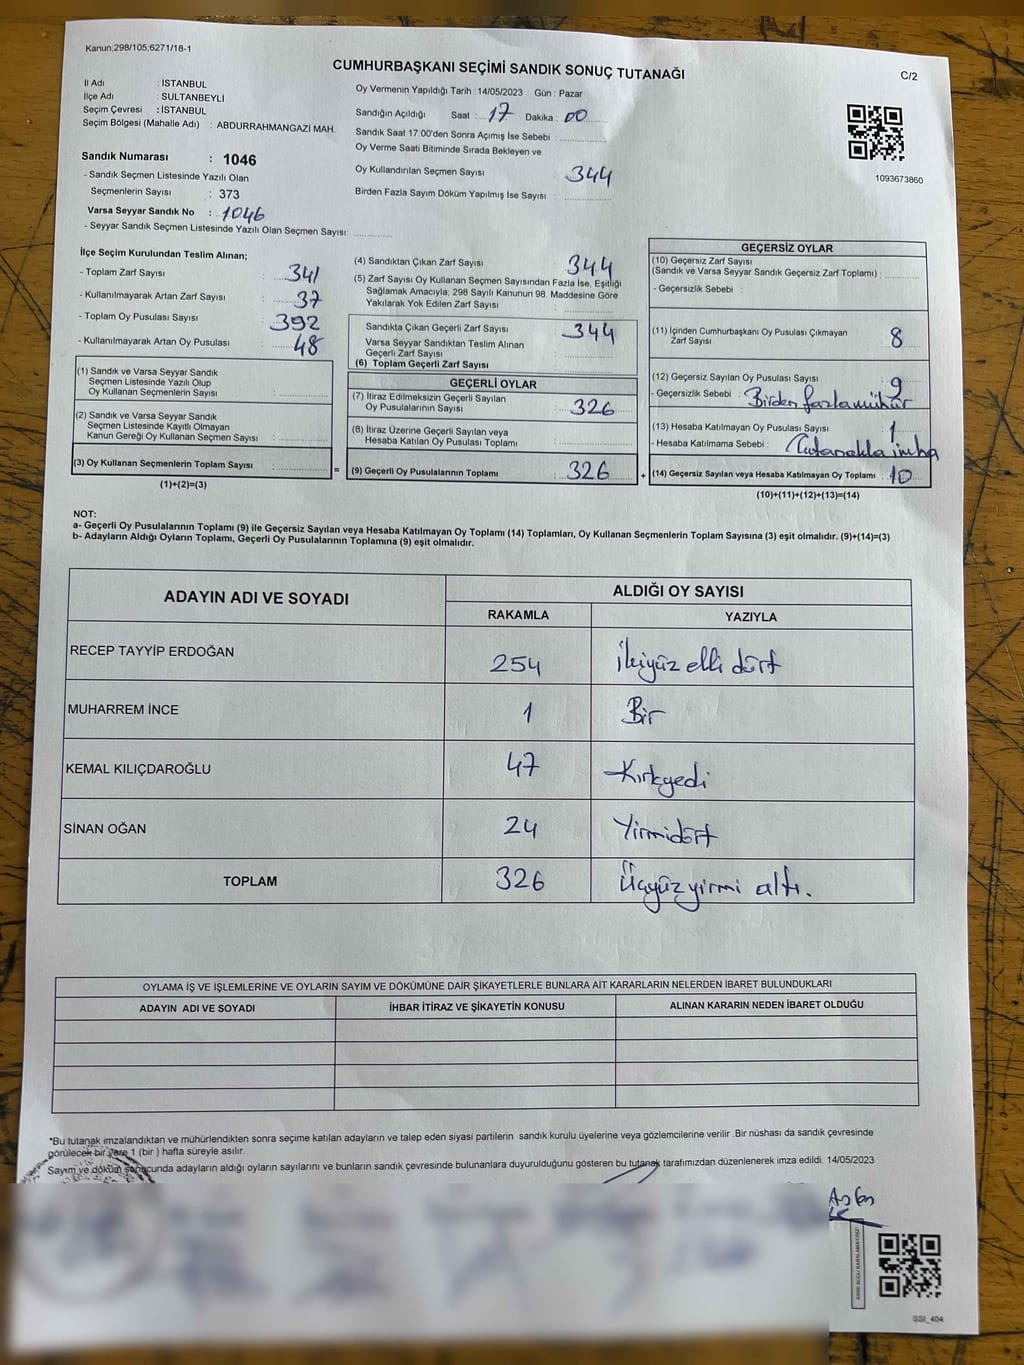 Kanun;298/105;6271/18-1
CUMHURBAŞKANI SEÇİMİ SANDIK SONUÇ TUTANAĞI
C/2
İl Adı : İSTANBUL
İlçe Adı : SULTANBEYLİ
Seçim Çevresi : İSTANBUL
Seçim Bölgesi (Mahalle Adı) : ABDURRAHMANGAZİ MAH.
Sandık Numarası : 1046
- Sandık Seçmen Listesinde Yazılı Olan
Seçmenlerin Sayısı : 373
Varsa Seyyar Sandık No : 1046
- Seyyar Sandık Seçmen Listesinde Yazılı Olan Seçmen Sayısı:
Oy Vermenin Yapıldığı Tarih : 14/05/2023 Gün : Pazar
Sandığın Açıldığı Saat : 17 Dakika : 00
Sandık Saat 17:00'den Sonra Açımış İse Sebebi :
Oy Verme Saati Bitiminde Sırada Bekleyen ve
Oy Kullandırılan Seçmen Sayısı : 344
Birden Fazla Sayım Döküm Yapılmış İse Sayısı :
1093673860
İlçe Seçim Kurulundan Teslim Alınan;
- Toplam Zarf Sayısı : 341
- Kullanılmayarak Artan Zarf Sayısı : 37
- Toplam Oy Pusulası Sayısı : 392
- Kullanılmayarak Artan Oy Pusulası : 48
(1) Sandık ve Varsa Seyyar Sandık
Seçmen Listesinde Yazılı Olup
Oy Kullanan Seçmenlerin Sayısı :
(2) Sandık ve Varsa Seyyar Sandık
Seçmen Listesinde Kayıtlı Olmayan
Kanun Gereği Oy Kullanan Seçmen Sayısı :
(3) Oy Kullanan Seçmenlerin Toplam Sayısı :
(1)+(2)=(3)
(4) Sandıktan Çıkan Zarf Sayısı : 344
(5) Zarf Sayısı Oy Kullanan Seçmen Sayısından Fazla İse, Eşitliği
Sağlamak Amacıyla; 298 Sayılı Kanunun 98. Maddesine Göre
Yakılarak Yok Edilen Zarf Sayısı :
Sandıkta Çıkan Geçerli Zarf Sayısı : 344
Varsa Seyyar Sandıktan Teslim Alınan
Geçerli Zarf Sayısı :
(6) Toplam Geçerli Zarf Sayısı :
GEÇERLİ OYLAR
(7) İtiraz Edilmeksizin Geçerli Sayılan
Oy Pusulalarının Sayısı : 326
(8) İtiraz Üzerine Geçerli Sayılan veya
Hesaba Katılan Oy Pusulası Toplamı :
= (9) Geçerli Oy Pusulalarının Toplamı : 326
GEÇERSİZ OYLAR
(10) Geçersiz Zarf Sayısı
(Sandık ve Varsa Seyyar Sandık Geçersiz Zarf Toplamı) :
- Geçersizlik Sebebi :
(11) İçinden Cumhurbaşkanı Oy Pusulası Çıkmayan
Zarf Sayısı : 8
(12) Geçersiz Sayılan Oy Pusulası Sayısı : 9
- Geçersizlik Sebebi : Birden fazla mühür
(13) Hesaba Katılmayan Oy Pusulası Sayısı : 1
- Hesaba Katılmama Sebebi : Tutanakla imha
+ (14) Geçersiz Sayılan veya Hesaba Katılmayan Oy Toplamı : 10
(10)+(11)+(12)+(13)=(14)
NOT:
a- Geçerli Oy Pusulalarının Toplamı (9) ile Geçersiz Sayılan veya Hesaba Katılmayan Oy Toplamı (14) Toplamları, Oy Kullanan Seçmenlerin Toplam Sayısına (3) eşit olmalıdır. (9)+(14)=(3)
b- Adayların Aldığı Oyların Toplamı, Geçerli Oy Pusulalarının Toplamına (9) eşit olmalıdır.
ADAYIN ADI VE SOYADI
ALDIĞI OY SAYISI
RAKAMLA YAZIYLA
RECEP TAYYİP ERDOĞAN 254 İkiyüz elli dört
MUHARREM İNCE 1 Bir
KEMAL KILIÇDAROĞLU 47 Kırkyedi
SİNAN OĞAN 24 Yirmidört
TOPLAM 326 Üçyüzyirmi altı.
OYLAMA İŞ VE İŞLEMLERİNE VE OYLARIN SAYIM VE DÖKÜMÜNE DAİR ŞİKAYETLERLE BUNLARA AİT KARARLARIN NELERDEN İBARET BULUNDUKLARI
ADAYIN ADI VE SOYADI İHBAR İTİRAZ VE ŞİKAYETİN KONUSU ALINAN KARARIN NEDEN İBARET OLDUĞU
*Bu tutanak imzalandıktan ve mühürlendikten sonra seçime katılan adayların ve talep eden siyasi partilerin sandık kurulu üyelerine veya gözlemcilerine verilir .Bir nüshası da sandık çevresinde
görülecek bir yere 1 (bir ) hafta süreyle asılır.
Sayım ve döküm sonucunda adayların aldığı oyların sayılarını ve bunların sandık çevresinde bulunanlara duyurulduğunu gösteren bu tutanak tarafımızdan düzenlenerek imza edildi. 14/05/2023
SSI_404